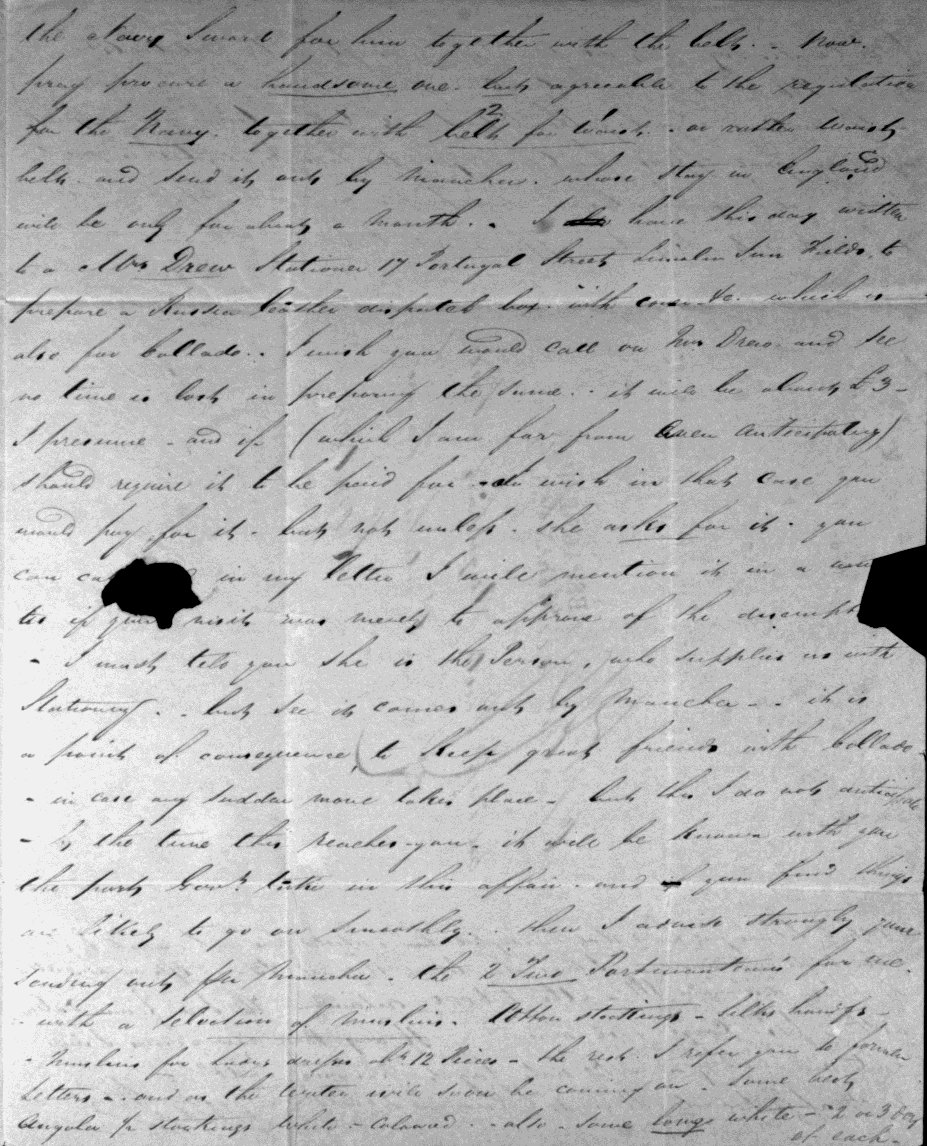 the Navy Sword for him together with the belt. - Now.
pray procure a handsome one. but agreeable to the regulation
for the Navy. together with 2 belts for waist. - or rather waist
belts. and send it out by Mancha. whose stay in England
will be only for about a month. - I have this day written
to a Mrs Drew Stationer 17 Portugal Street Lincoln Inn Fields, to
prepare a Russia leather dispatch box. with cover &c. which is
also for Collado. - I wish you would call on Mrs Drew and see
no time is lost in preparing the same. - it will be about £3 -
I presume - and if (which I am far from even anticipating)
should require it to be paid for - do wish in that case you
would pay for it. but not unless. she asks for it. you
can in my letter I will mention it in a
as if your visit was merely to approve of the
- I must tell you she is the Person, who supplies us with
Stationery. - but see it comes out by Mancha - it is
a point of consequence, to keep great friends with Collado -
- in case any sudden move takes place - but this I do not anticipate
- by the time this reaches you - it will be known with you
the part Govt. take in this affair. and if you find things
are likely to go on smoothly. - then I advise strongly your
sending out per Mancha - the 2 Two Portmanteaus for me.
- with a selection of muslins. Cotton stockings - silk handfs -
- Muslins for Ladies dresses abt 12 Pieces - the rest I refer you to former
letters - and as the winter will soon be coming on - some best
Angola stockings white - coloured - also some long white - 2 or 3 doz
of each -